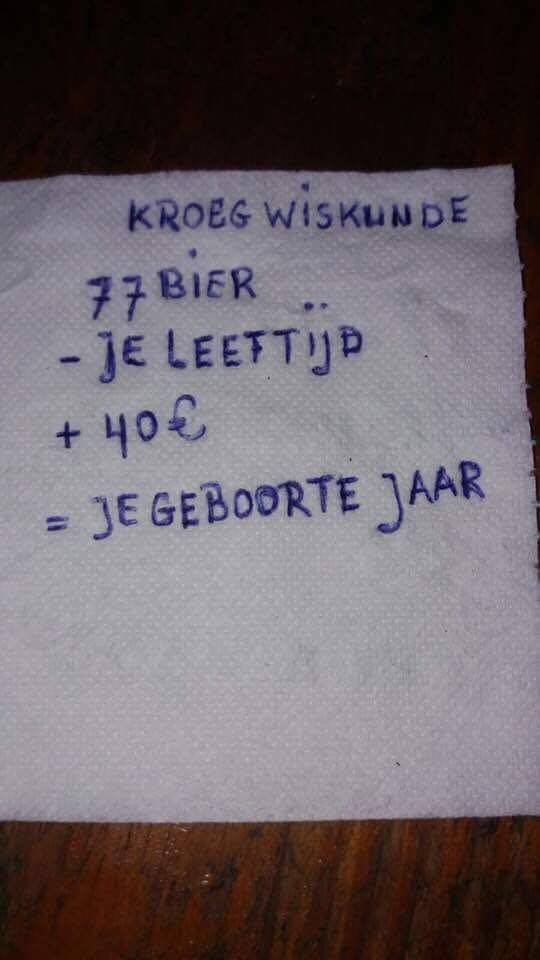 KROEG WISKUNDE
77 BIER
- JE LEEFTIJD
+ 40 €
= JE GEBOORTE JAAR